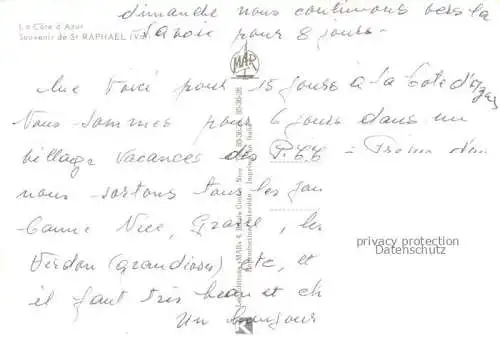 dimanche nous continuons vers la
La Côte d'Azur
Souvenir de St RAPHAEL (Var)
Savoie pour 8 jours.
MAR
Me voici pour 15 jours à la Cote d'Azur
Nous sommes pour 6 jours dans un
village vacances des P.T.T.
nous sortons tous les jou
Canne Nice, Grasse, les
Verdon (grandiose) etc, et
il faut très beau et ch
Un bonjour
privacy protection
Datenschutz